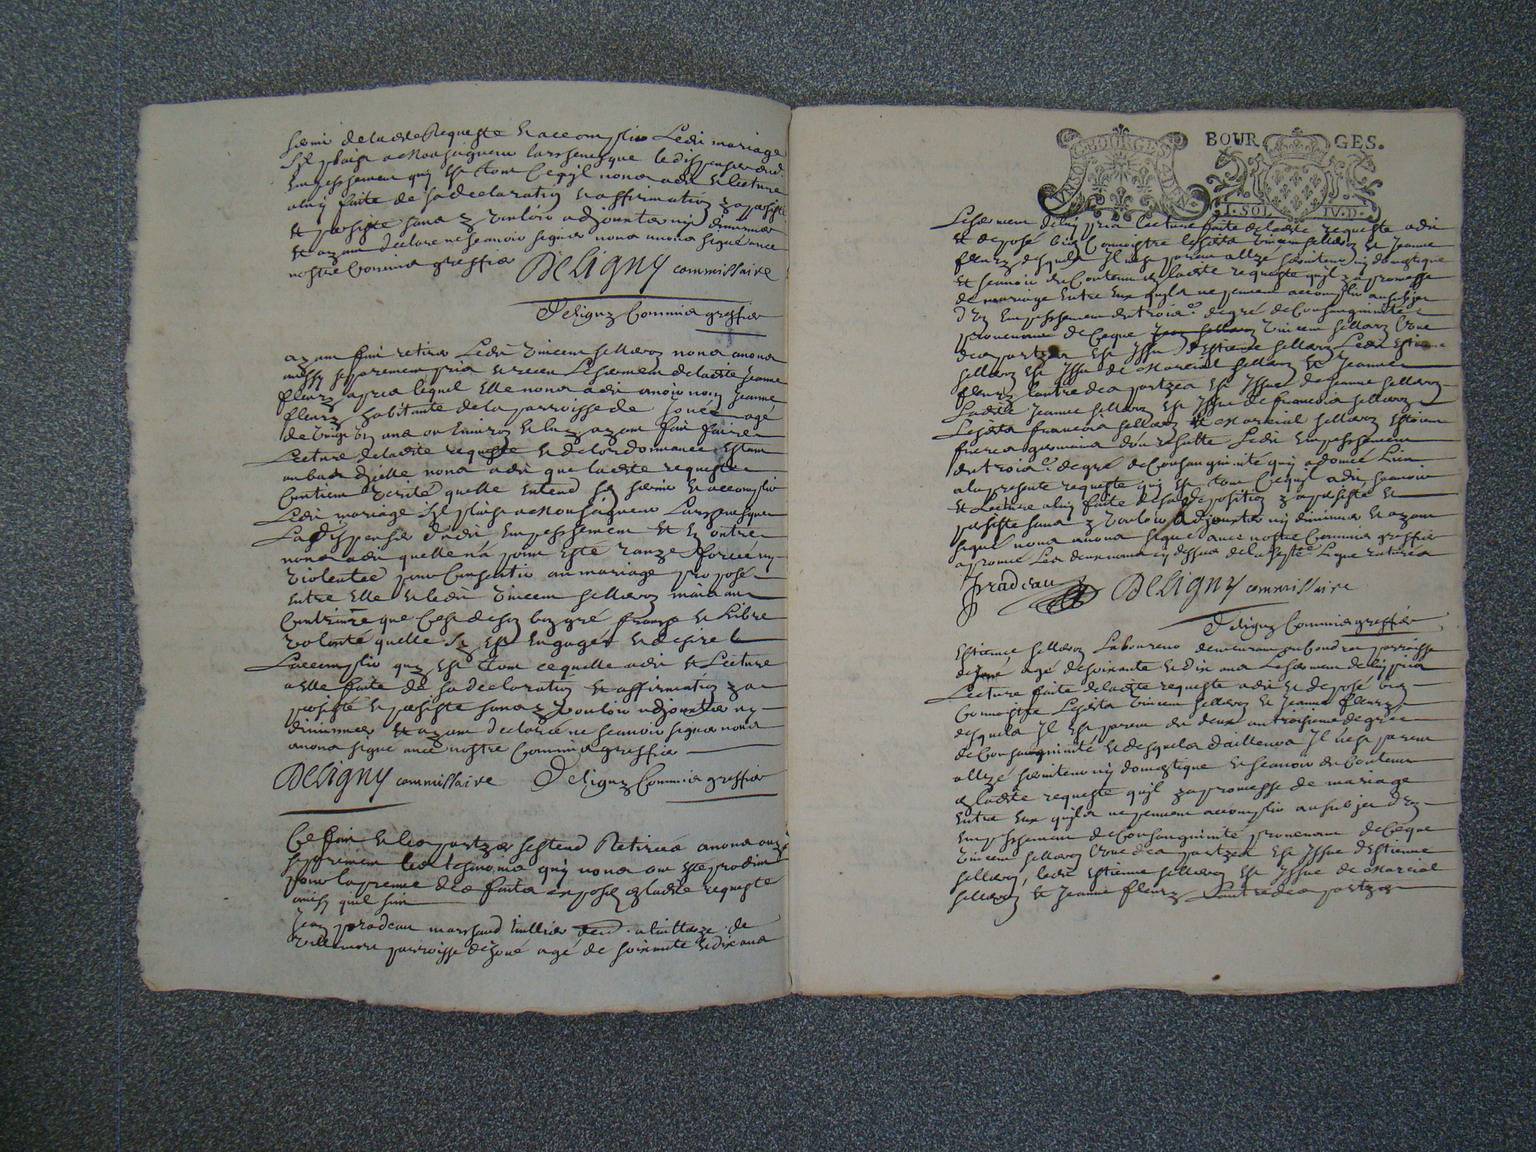 servir de ladite Requeste et accomplir Ledit mariage
s'il plaist a Monseigneur Larchevesque le dispenser dudit
empeschement quy est tout ce qu'il nous a dit et lecture
a luy faite de sa declaration et affirmation y a persisté
et persiste sans y vouloir adjouster ny diminuer
et ayant declaré ne scavoir signer nous avons signé avec
nostre Commis greffier DELIGNY commissaire
Deligny Commis greffier
ayant fait retirer Ledit Vincent selleron nous avons
aussy separement pris et receu Le serment de ladite Jeanne
fleury apres lequel Elle nous a dit avoir nom Jeanne
fleury habitante de la parroisse de Joué agé
de vingt ans ou environ et luy ayant fait faire
Lecture de ladite requeste et de lordonnance estant
au bas dicelle nous a dit que ladite requeste
Contient verité quelle entend sen servir et accomplir
Ledit mariage s'il plaist a Monseigneur Larchevesque
La dispenser dudit empeschement et en outre
nous a dit quelle na point esté forcée ny
violentée pour Consentir au mariage proposé
entre elle et ledit Vincent selleron mais au
Contraire que cest de son bon gré franche et Libre
volonté quelle sy est engagée et desire
Laccomplir quy est tout ce quelle a dit et Lecture
a elle faite de sa declaration et affirmation y a
persisté et persiste sans y vouloir adjouster ny
diminuer et ayant declaré ne scavoir signer nous
avons signé avec nostre Commis greffier
DELIGNY commissaire Deligny Commis greffier
Ce fait et les partyes sestant Retirées avons ouy
separement les tesmoins quy nous ont esté produits
pour la preuve des faits exposez en ladite requeste
ainsy quil suit
Jean pradeau marchand
parroisse de Joué agé de soixante et dix ans
BOURGES
BOUR GES.
I. SOL. IV. D.
Le serment de luy pris lecture faite de ladite requeste a dit
et deposé bien Connoistre lesdits Vincent selleron et Jeanne
fleury desquels Il nest parent allyé serviteur ny domestique
et scavoir du Contenu en ladite requeste quil y a promesse
de mariage entre eux quils ne peuvent accomplir au subjet
d'un empeschement du trois.e degré de Consanguinité
provenant de ce que Vincent selleron l'une
des partyes est Issu d'Estienne selleron Ledit Estienne
selleron est Issu de Martial selleron et Jeanne
fleury lautre des partyes est Issue de Jeanne selleron
Ladite Jeanne selleron est Issue de francois selleron
Lesdits francois selleron et Martial selleron estoient
freres germains dou resulte Ledit empeschement
du trois.e degré de Consanguinité quy a donné Lieu
a la presente requeste quy est tout ce quil a dit scavoir
et Lecture a luy faite de sa deposition y a persisté et
persiste sans y vouloir adjouster ny diminuer et ayant
signé nous avons signé avec nostre Commis greffier
pradeau DELIGNY commissaire
Deligny Commis greffier
Estienne selleron Laboureur demeurant parroisse
de Joué agé de soixante et dix ans Le serment de luy pris
Lecture faite de ladite requeste a dit et deposé bien
Connoistre Lesdits Vincent selleron et Jeanne fleury
desquels Il est parent des deux au troisieme degré
de Consanguinité et desquels d'ailleurs Il nest parent
allyé serviteur ny domestique et scavoir du Contenu
en ladite requeste quil y a promesse de mariage
entre eux quils ne peuvent accomplir au subjet d'un
empeschement de Consanguinité provenant de ce que
Vincent selleron l'une des partyes est Issu d'Estienne
selleron, ledit Estienne selleron est Issue de Martial
selleron et Jeanne fleury Lautre des partyes